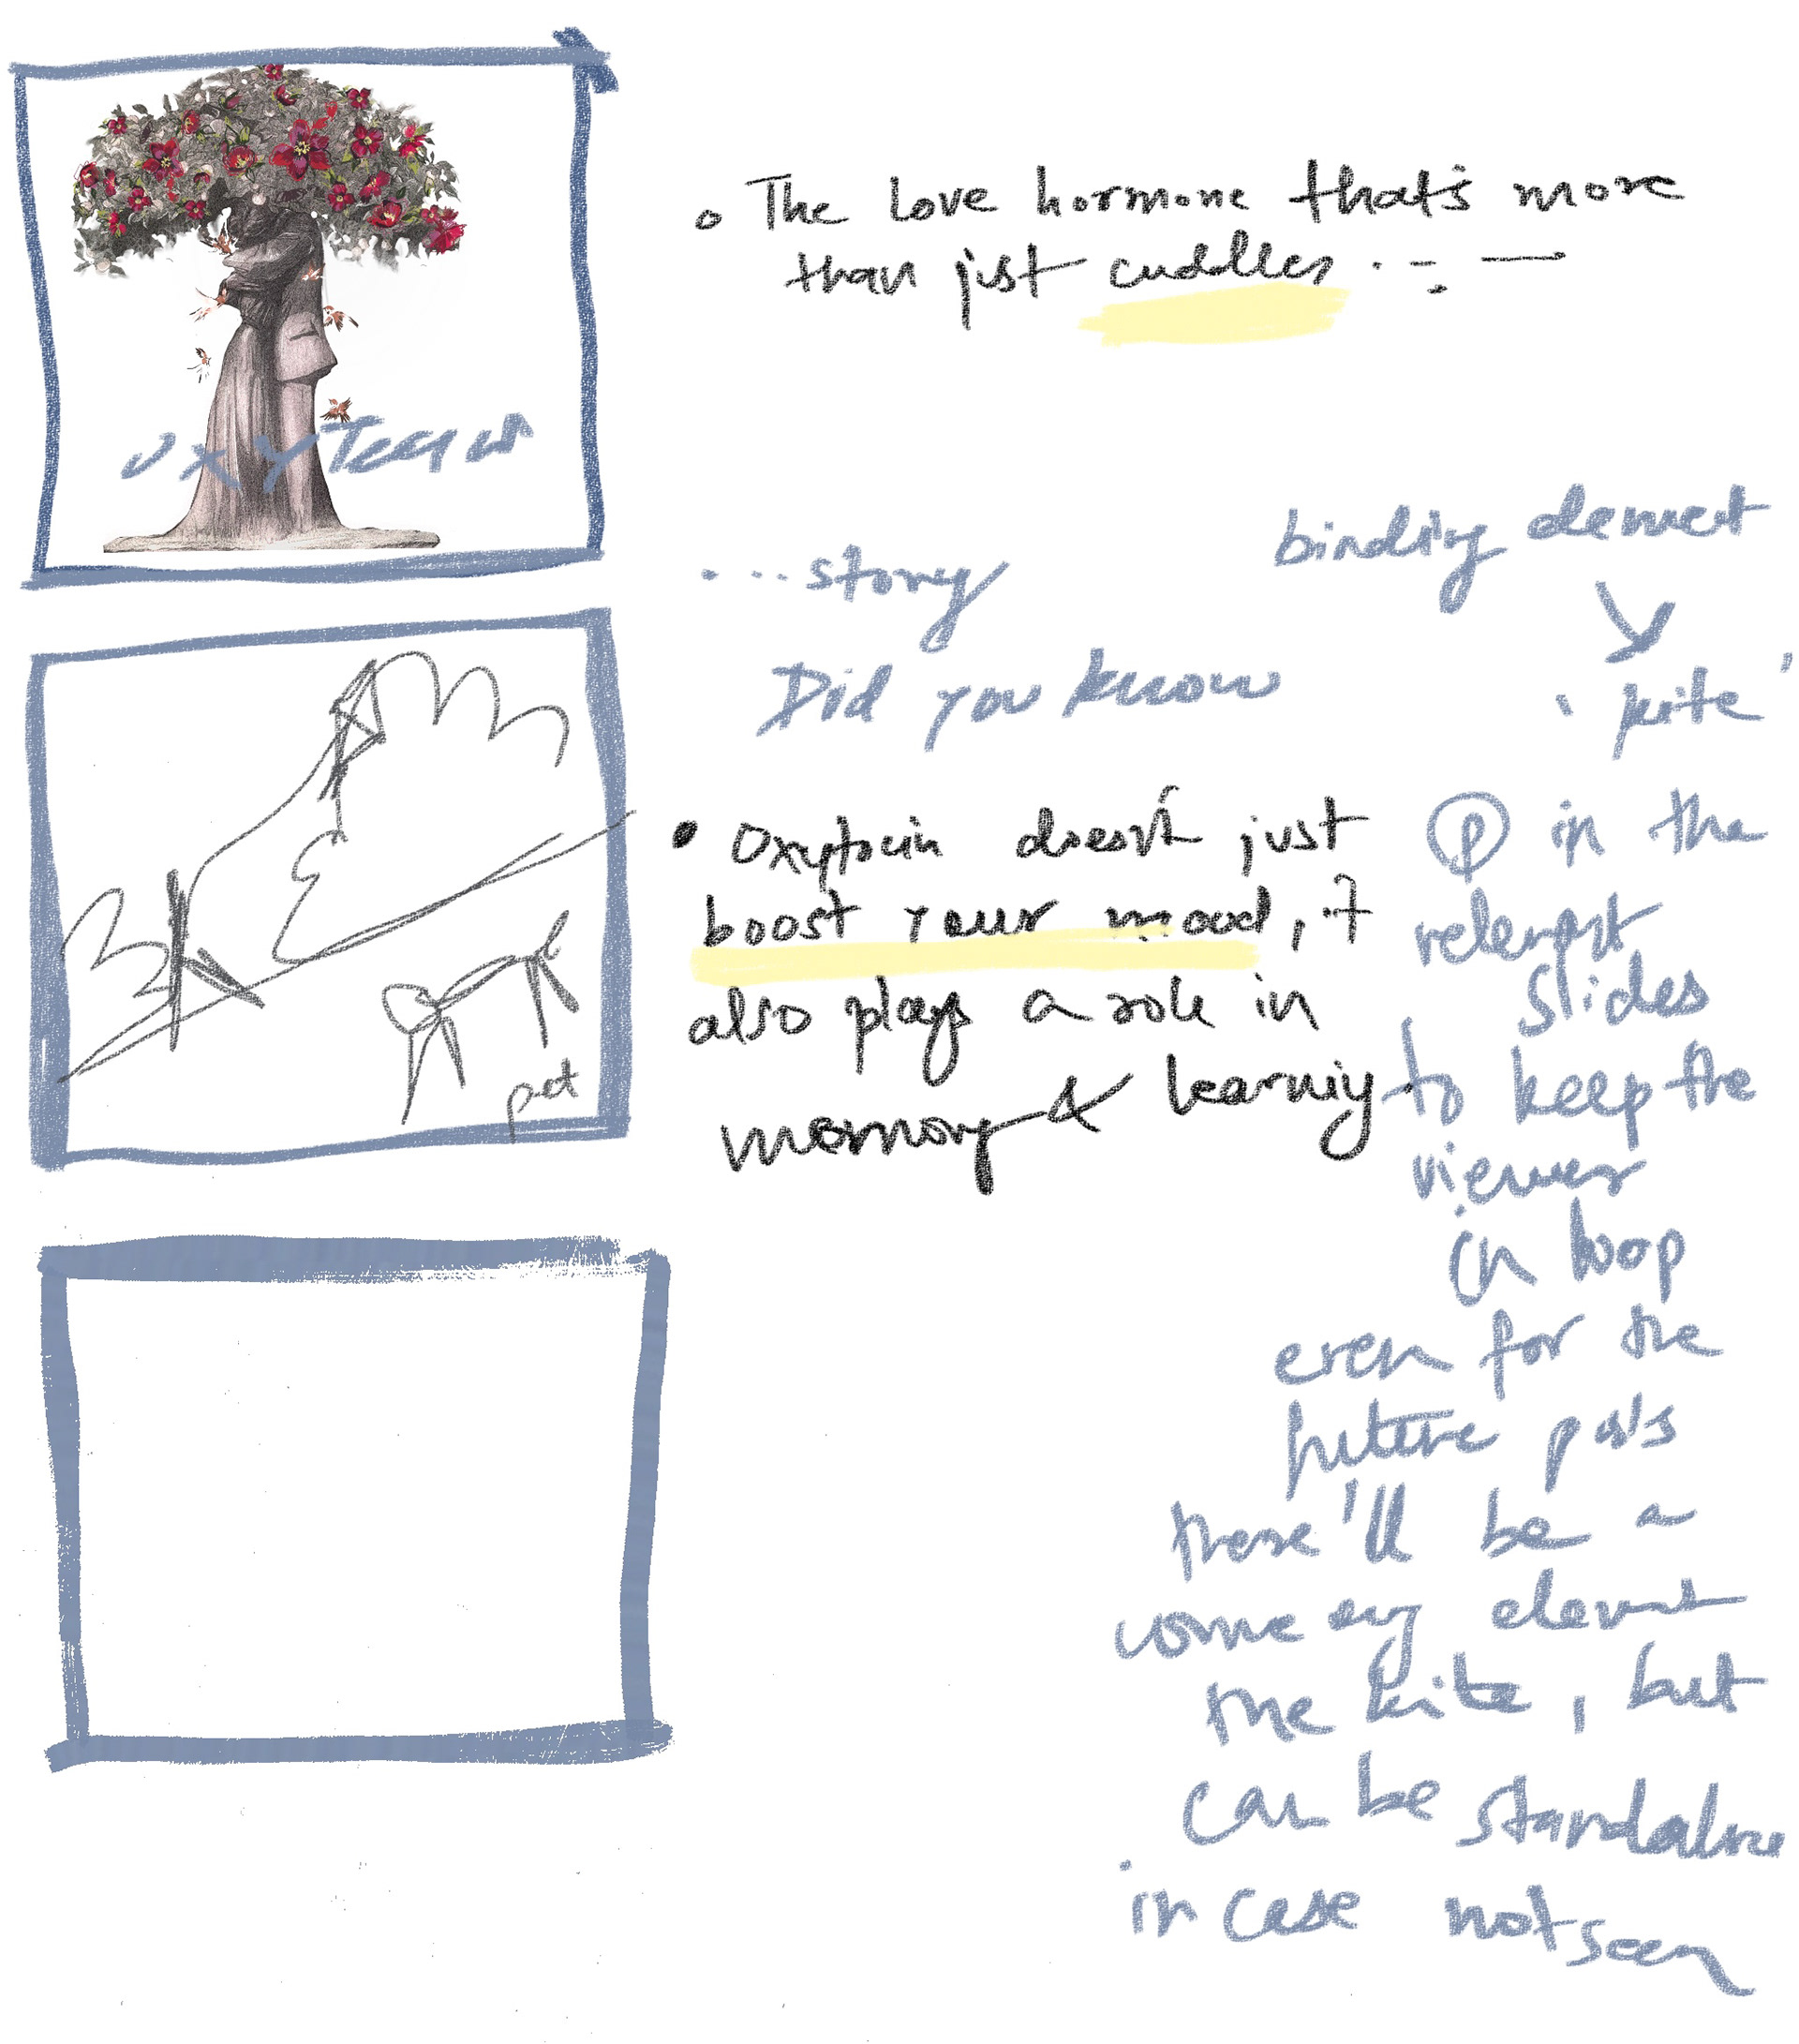 The love hormone that's more
than just cuddles
...story
Did you know
Oxytocin doesn't just
boost your mood, it
also plays a role in
memory & learning
pet
binding element
'kite'
in the
relevant
slides
to keep the
viewer
in loop
even for the
future posts
there'll be a
element
the kite, but
can be standalone
in case not seen